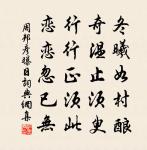 冬曦如村釀
奇溫止須臾
行行正須此
恋恋忽已無
周邦彥曝日詞典網集